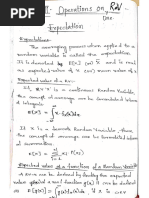 II - Operations on R.V
Date
Expectation
Expectation:
The averaging process when applied to a
random variable is called the expectation.
It is denoted by E[x] (or) x̄ and is read
the expected value of x (or) mean value of x
Expected value of a R.V:-
If 'x' is a continuous Random variable, then
the concept of average can be formulated interms
of integrals.
E[x] = ∫ x. fx(x)dx
If 'x' is a discrete Random Variable, then
the concept of average can be formulated interms
of summations.
E[x] = Σ xi P(xi)
Expected value of a function of a Random Variable
can be derived by the expected
value of real function g(x) is defined as
E[g(x)] = ∫ g(x)fx(x)dx, if x is c.R.V